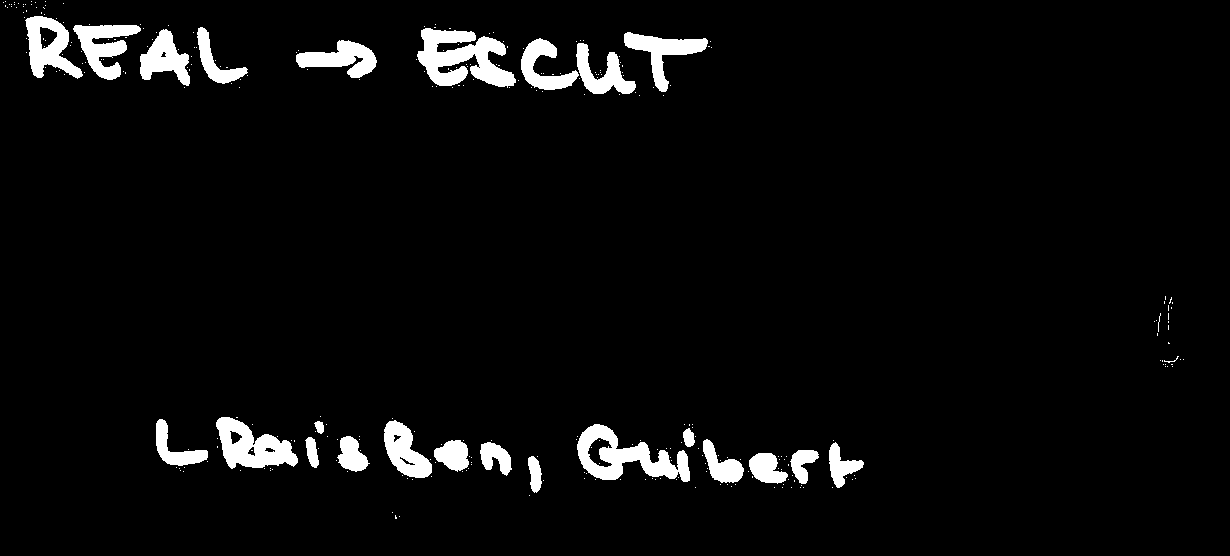 REAL → ESCUT
L Rais Ben, Guibert